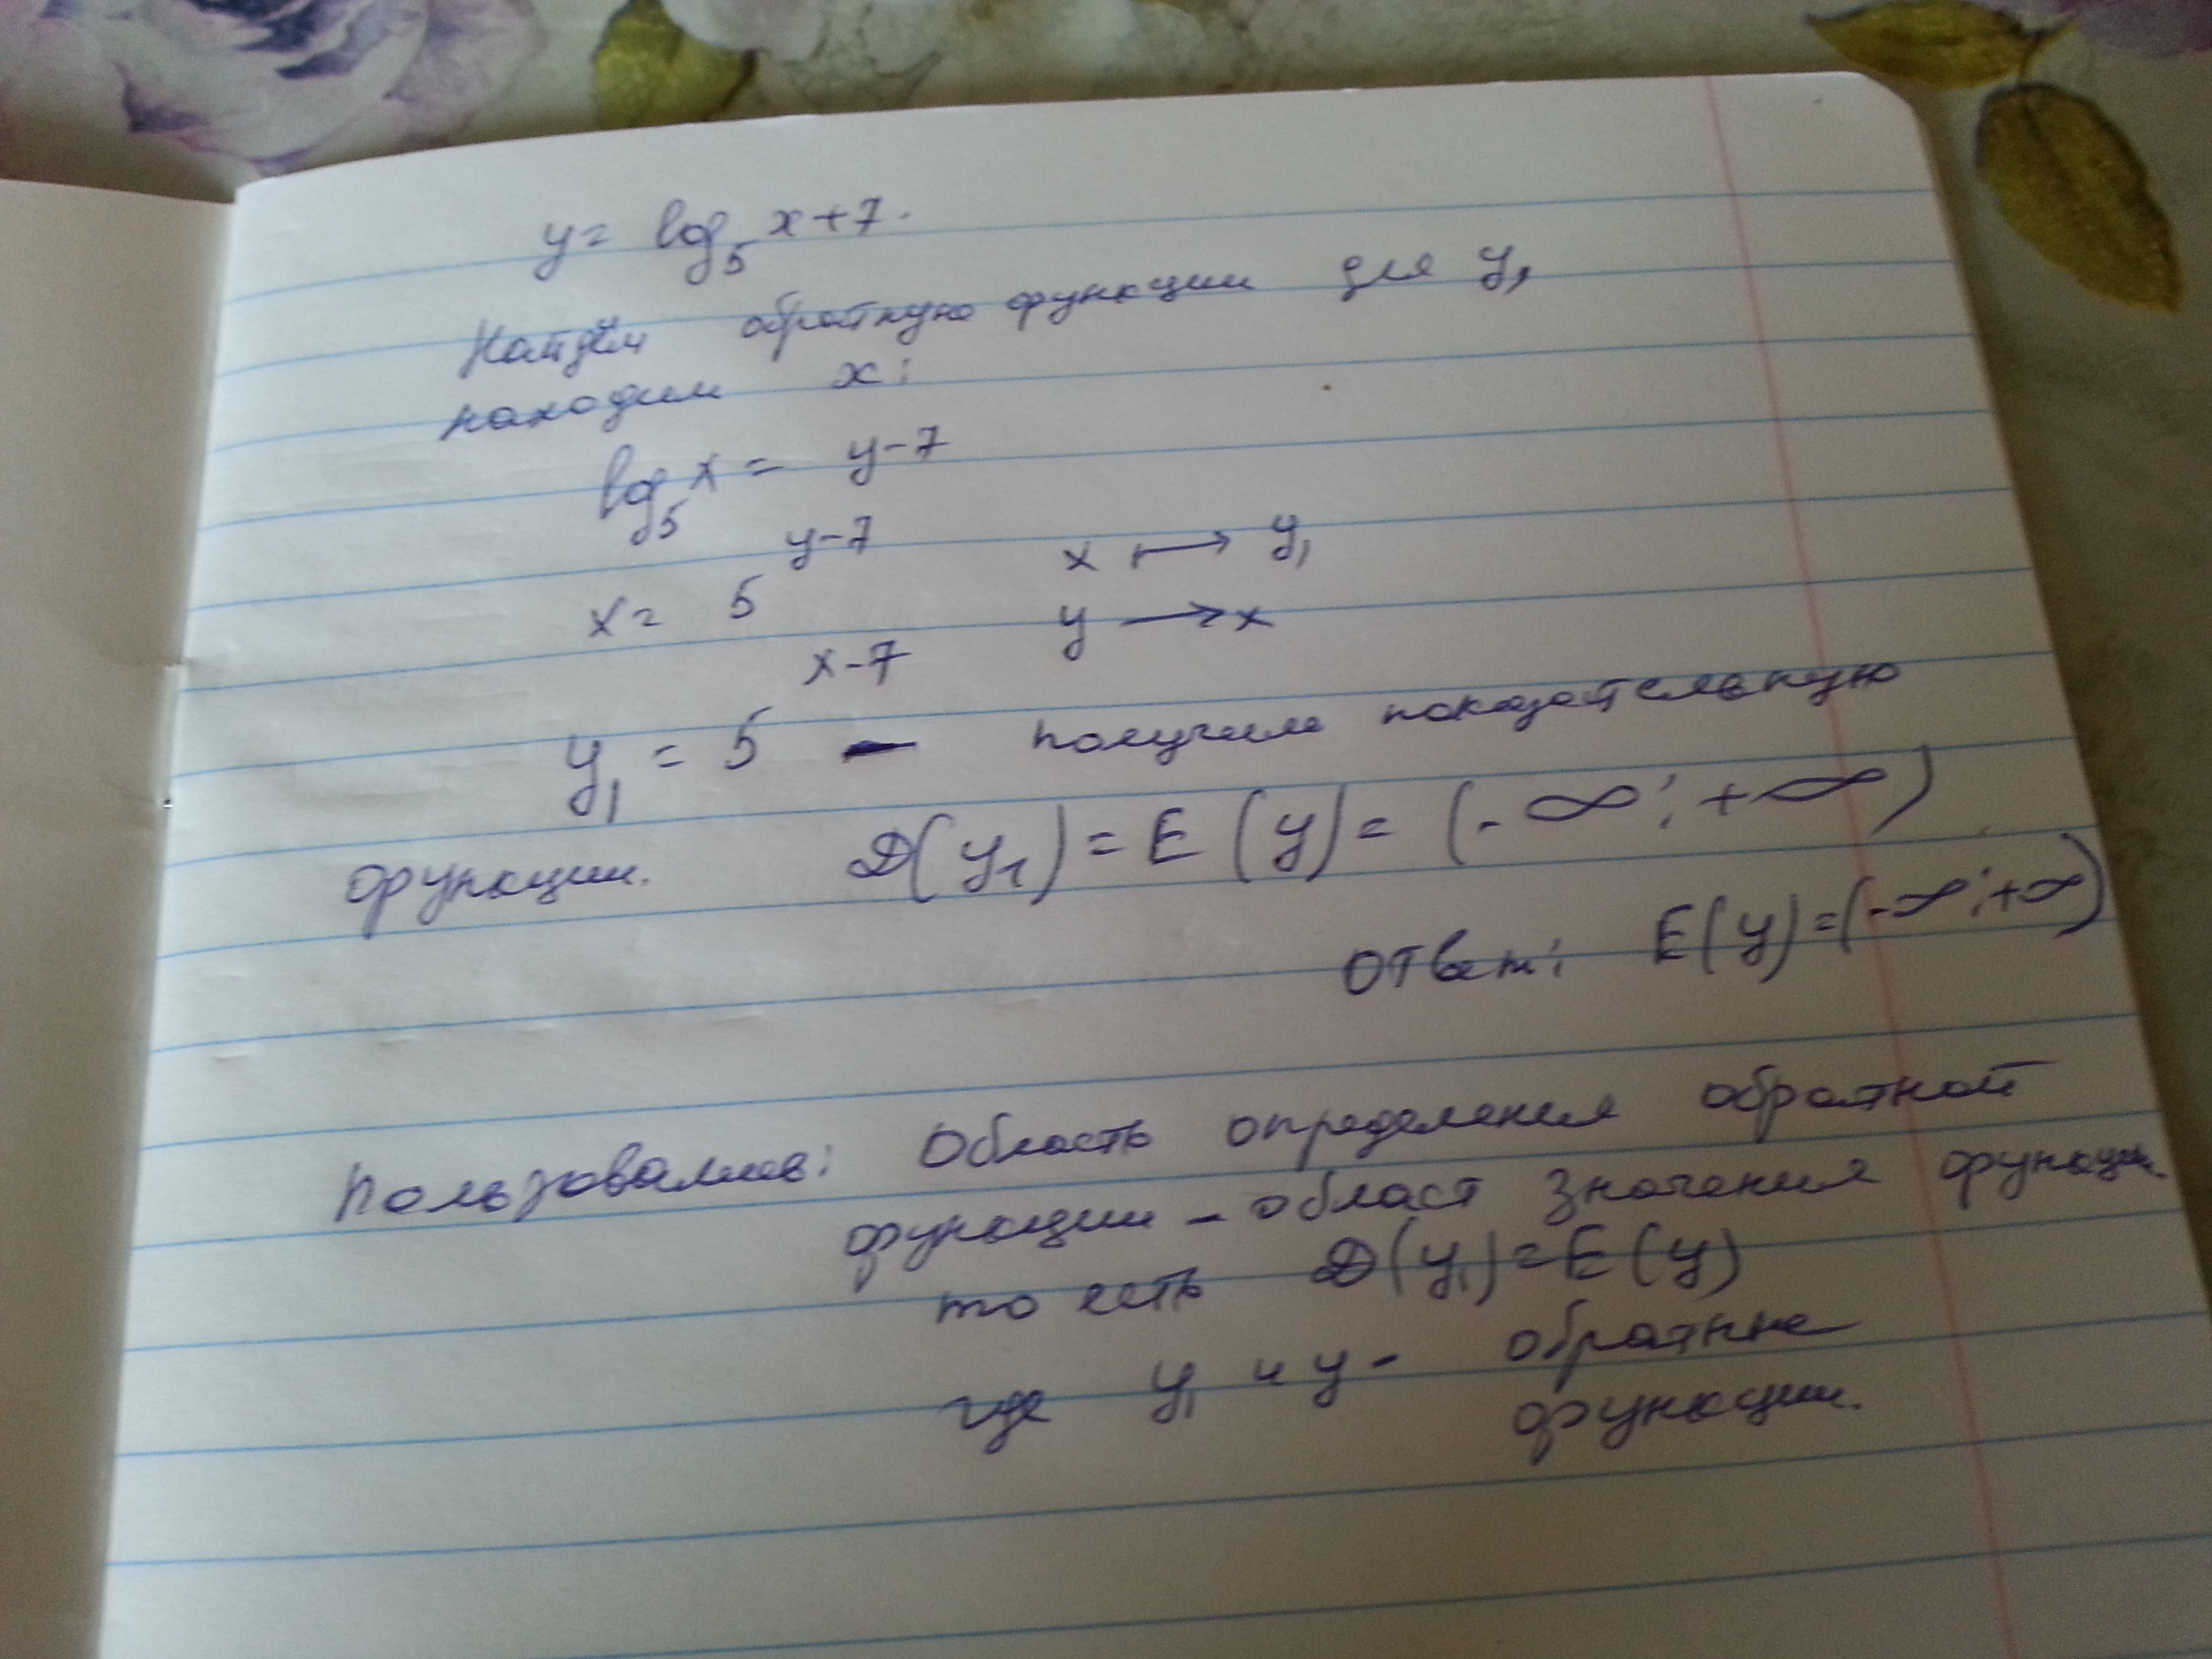 y = log₅ x+7.
Найдём обратную функции для y,
находим x:
log₅ x = y-7
x = 5^(y-7) x ↦ y₁
y → x
y₁ = 5^(x-7) - получим показательную
функции. D(y₁) = E(y) = (-∞; +∞)
Ответ: E(y)=(-∞;+∞)
Пользовались: Область определения обратной
функции - област значения функции
то есть D(y₁)=E(y)
где y₁ и y - обратные
функции.